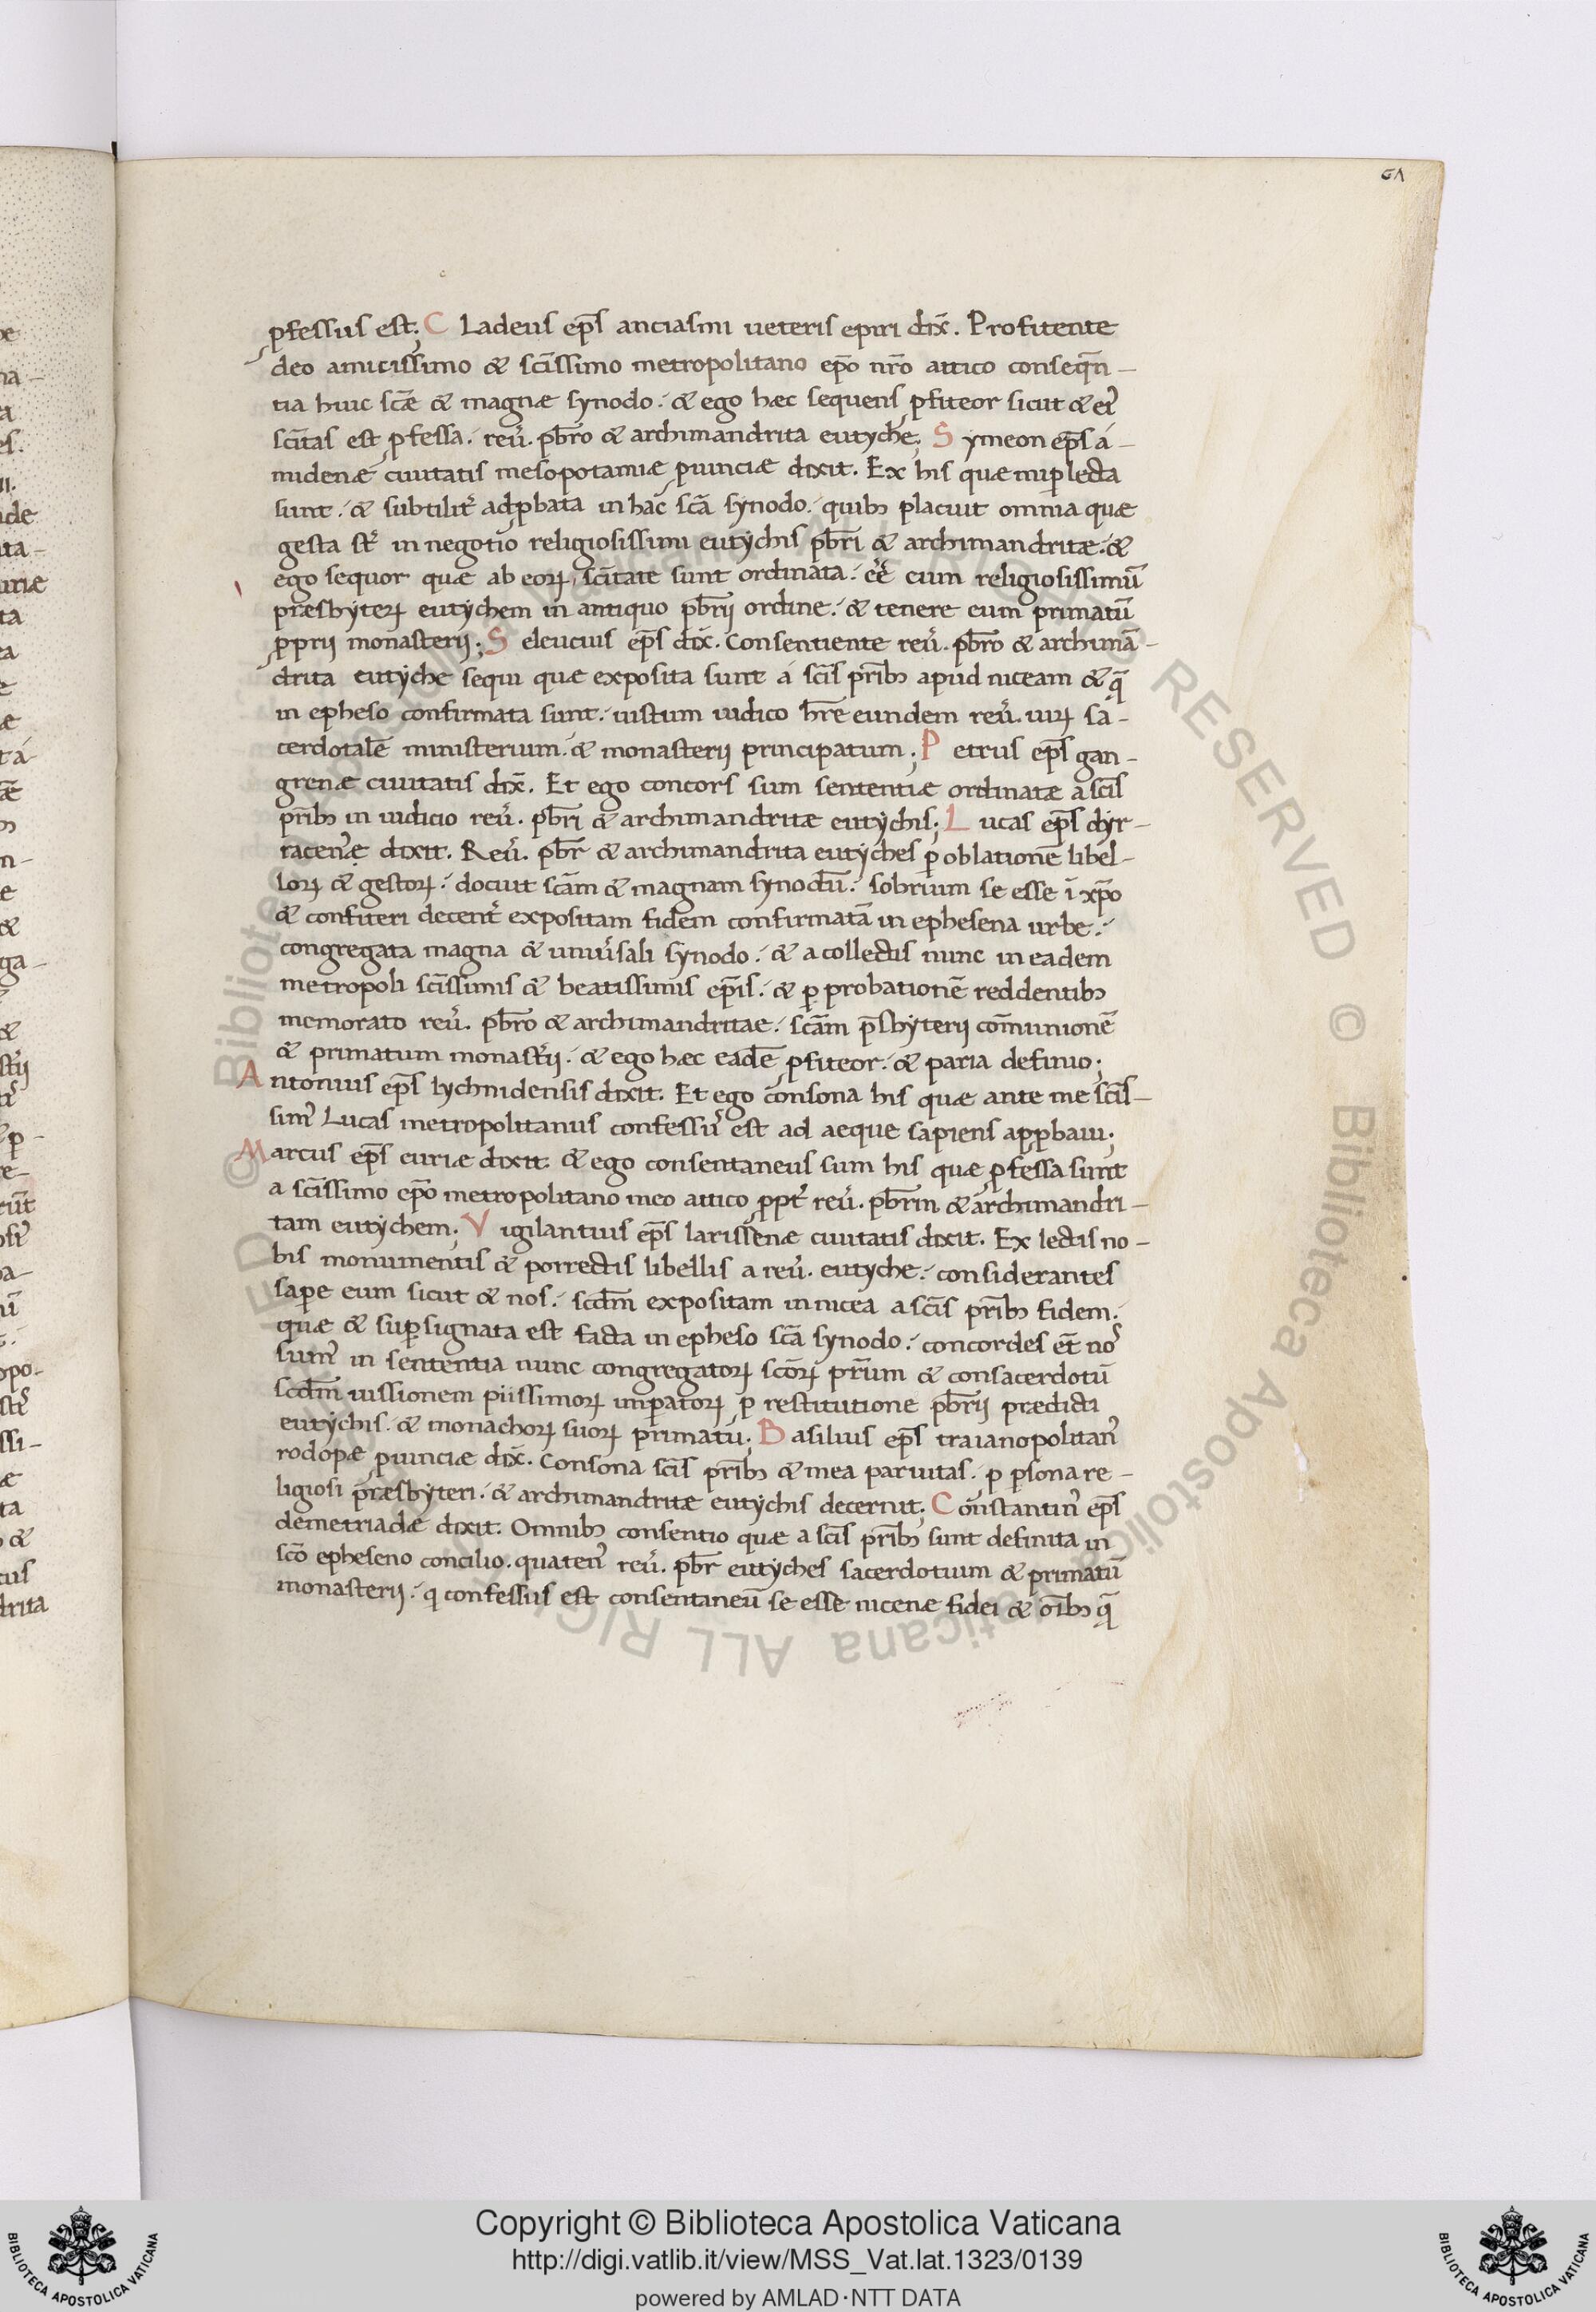 61
ꝓfessus est; Cladeus ep̄s anciasmi ueteris epiri dix̄. Profitente
deo amicissimo & sc̄issimo metropolitano ep̄o nr̄o attico conseq̄n-
tia huic sc̄æ & magnæ synodo. & ego hæc sequens ꝓfiteor sicut & ei᾽
sc̄itas est ꝓfessa. reu᾽. pb̄ro & archimandrita eutyche; Symeon ep̄s á-
midenæ ciuitatis mesopotamiæ ꝓuinciæ dixit. Ex his quæ nuꝑ lecta
sunt. & subtilit᾽ adꝓbata in hac sc̄a synodo. quibꝫ placuit omnia quæ
gesta st᾽ in negotio religiosissimi eutychis pb̄ri & archimandritæ. &
ego sequor quæ ab eoꝝ sc̄itate sunt ordinata. eē cum religiosissimū
præsbyteꝝ eutychem in antiquo pb̄rii ordine. & tenere eum primatū
ꝓprii monasterii; Seleucius ep̄s dix̄. Consentiente reu᾽. pb̄ro & archimā-
drita eutyche sequi quæ exposita sunt á sc̄is pr̄ibꝫ apud niceam & q̄
in epheso confirmata sunt. iustum iudico hr̄e eundem reu᾽. uiꝝ sa-
cerdotalē ministerium. & monasterii principatum; Petrus ep̄s gan-
grenæ ciuitatis dix̄. Et ego concors sum sententiæ ordinatæ a sc̄is
pr̄ibꝫ in iudicio reu᾽. pb̄ri & archimandritæ eutychis; Lucas ep̄s dyr-
racenæ dixit. Reu᾽. pb̄r & archimandrita eutyches ꝑ oblationē libel-
loꝝ & gestoꝝ. docuit sc̄am & magnam synodū. sobrium se esse ī xp̄o
& confiteri decent᾽ expositam fidem confirmatā in ephesena urbe.
congregata magna & uniu᾽sali synodo. & a collectis nunc in eadem
metropoli sc̄issimis & beatissimis ep̄is. & ꝑ probationē reddentibꝫ
memorato reu᾽. pb̄ro & archimandritae. sc̄am p̄sbyterii com̄unionē
& primatum monast᾽ii. & ego hæc eadē ꝓfiteor. & paria definio;
Antonius ep̄s lychnidensis dixit. Et ego consona his quæ ante me sc̄is-
sim᾽ Lucas metropolitanus confessu᾽ est ad aeque sapiens apꝓbaui;
Marcus ep̄s euriæ dixit. & ego consentaneus sum his quæ ꝓfessa sunt
a sc̄issimo ep̄o metropolitano meo attico ꝓpt᾽ reu᾽. pb̄rm & archimandri-
tam eutychem; Vigilantius ep̄s larissenæ ciuitatis dixit. Ex lectis no-
bis monumentis & porrectis libellis a reu᾽. eutyche. considerantes
sapere eum sicut & nos. scd̄m expositam in nicea a sc̄is pr̄ibꝫ fidem.
quæ & suꝑsignata est facta in epheso sc̄a synodo. concordes et̄ no᾽
sum᾽ in sententia nunc congregatoꝝ sc̄oꝝ pr̄um & consacerdotū
scd̄m iussionem piissimoꝝ imꝑatoꝝ ꝑ restitutione pb̄rii prædicti
eutychis. & monachoꝝ suoꝝ primatu; Basilius ep̄s traianopolitan᾽
rodopæ ꝓuinciæ dix̄. Consona sc̄is pr̄ibꝫ & mea paruitas. ꝑ ꝑsona re-
ligiosi præsbyteri. & archimandritæ eutychis decernit; Constantin᾽ ep̄s
demetriadæ dixit. Omnibꝫ consentio quæ a sc̄is pr̄ibꝫ sunt definita in
sc̄o epheseno concilio. quaten᾽ reu᾽. pb̄r eutyches sacerdotium & primatū
monasterii. qi confessus est consentaneū se esse nicenæ fidei & oīb̄ꝫ q̄
Copyright © Biblioteca Apostolica Vaticana
http://digi.vatlib.it/view/MSS_Vat.lat.1323/0139
powered by AMLAD·NTT DATA